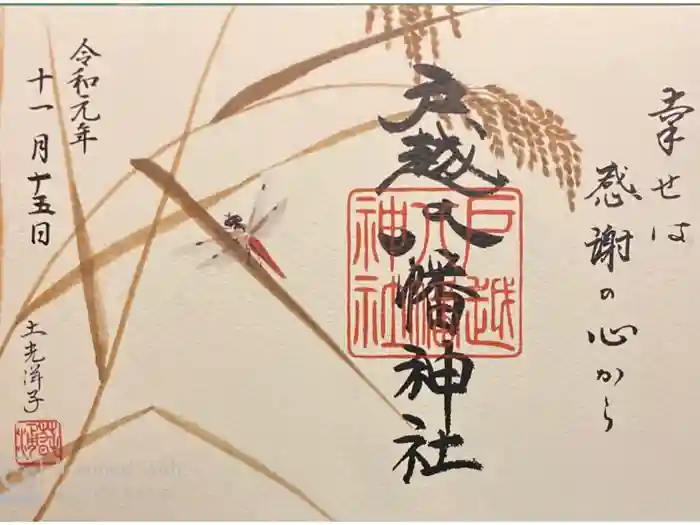 幸せは
感謝の心から
戸越八幡神社
戸越
八幡
神社
令和元年
十一月十五日
土光洋子